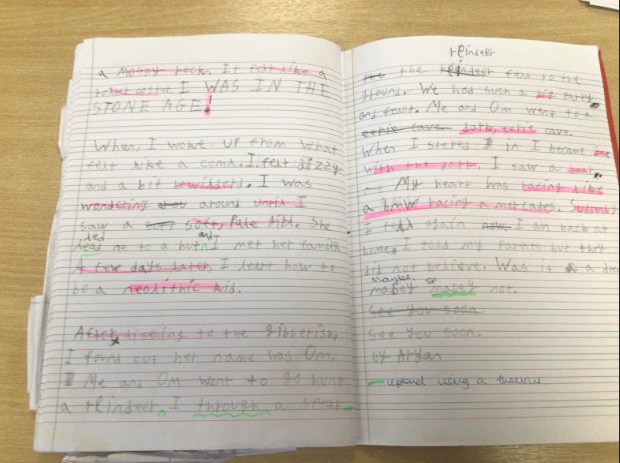 a Mossy rock. It felt like a
I WAS IN THE
STONE AGE!
When, I woke up from what
felt like a coma. I felt dizzy
and a bit bewilderd. I was
wondering around until I
saw a soft, Pale girl. She
led
lead me to a hut and I met her family
A few days later, I leart how to
be a neolithic kid.
After, listening to the gibberish,
I found out her name was Om.
Me and Om went to go hunt
a reindeer, I through a spear
reindeer
the the reindeer fell to the
ground. We had such a big party
and feast. Me and Om went to a
eerie cave. dark, eerie cave.
When I stered in I became one
with the dark. I saw a
My heart was racing like
a bmw racing a mercades. Suddenly
I fell again now I am back at
home. I told my parents but they
did not believe. Was it a
maybe so
mabey mabey not.
See you soon
See you soon.
by Aryan
- upleval using a